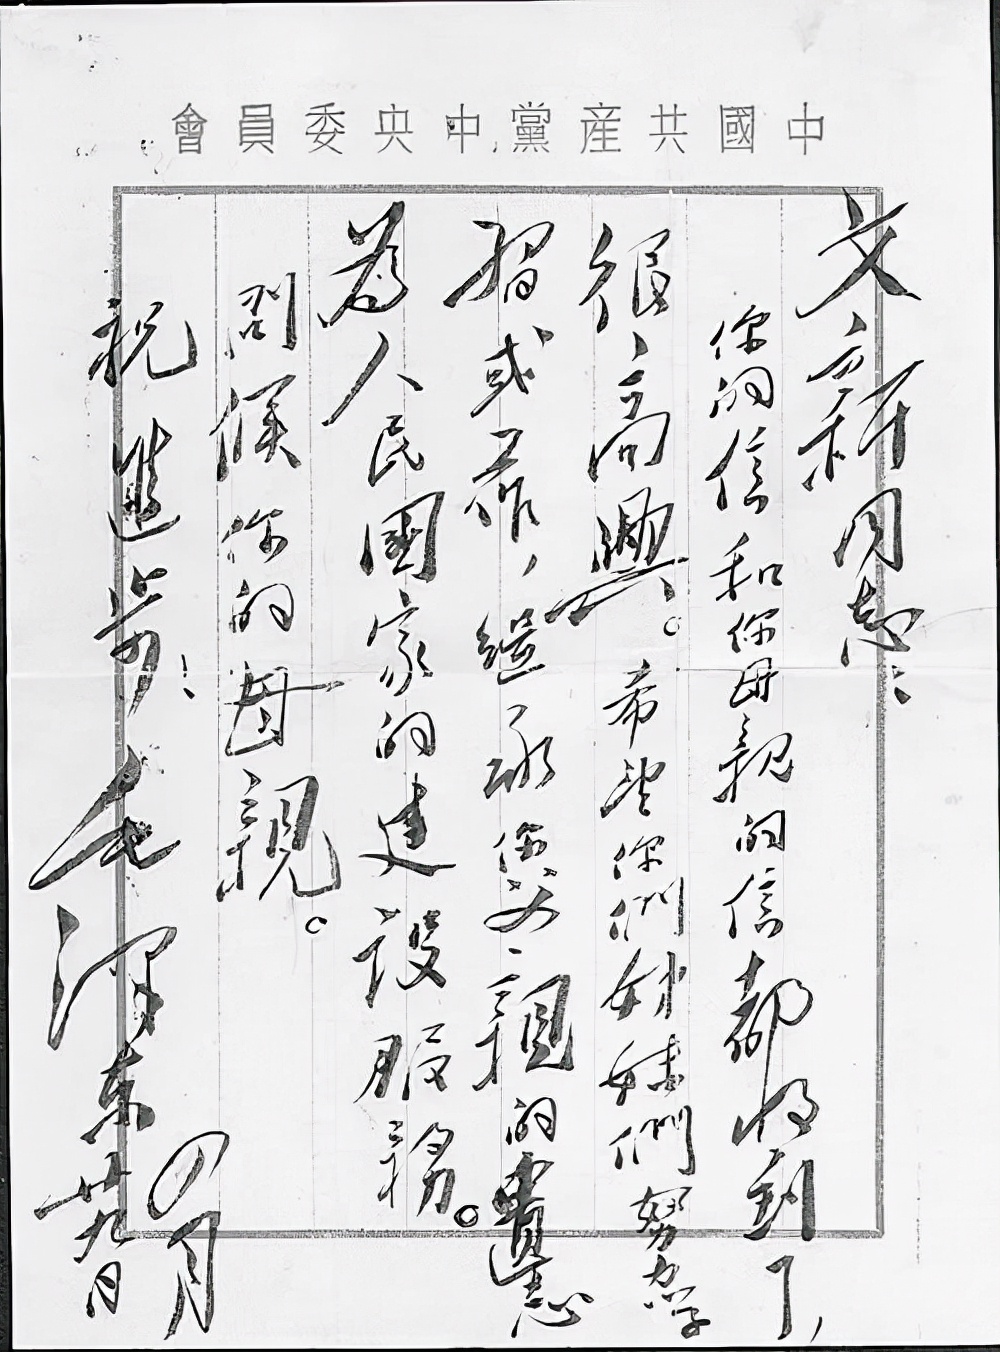 中國共産黨中央委員會
文新同志：
你的信和你母親的信都收到了，
很高興。希望你們姊妹們努力學
習或工作，繼承你父親的遺志
為人民國家的建設服務。
問候你的母親。
祝進步！毛澤東
四月廿九日